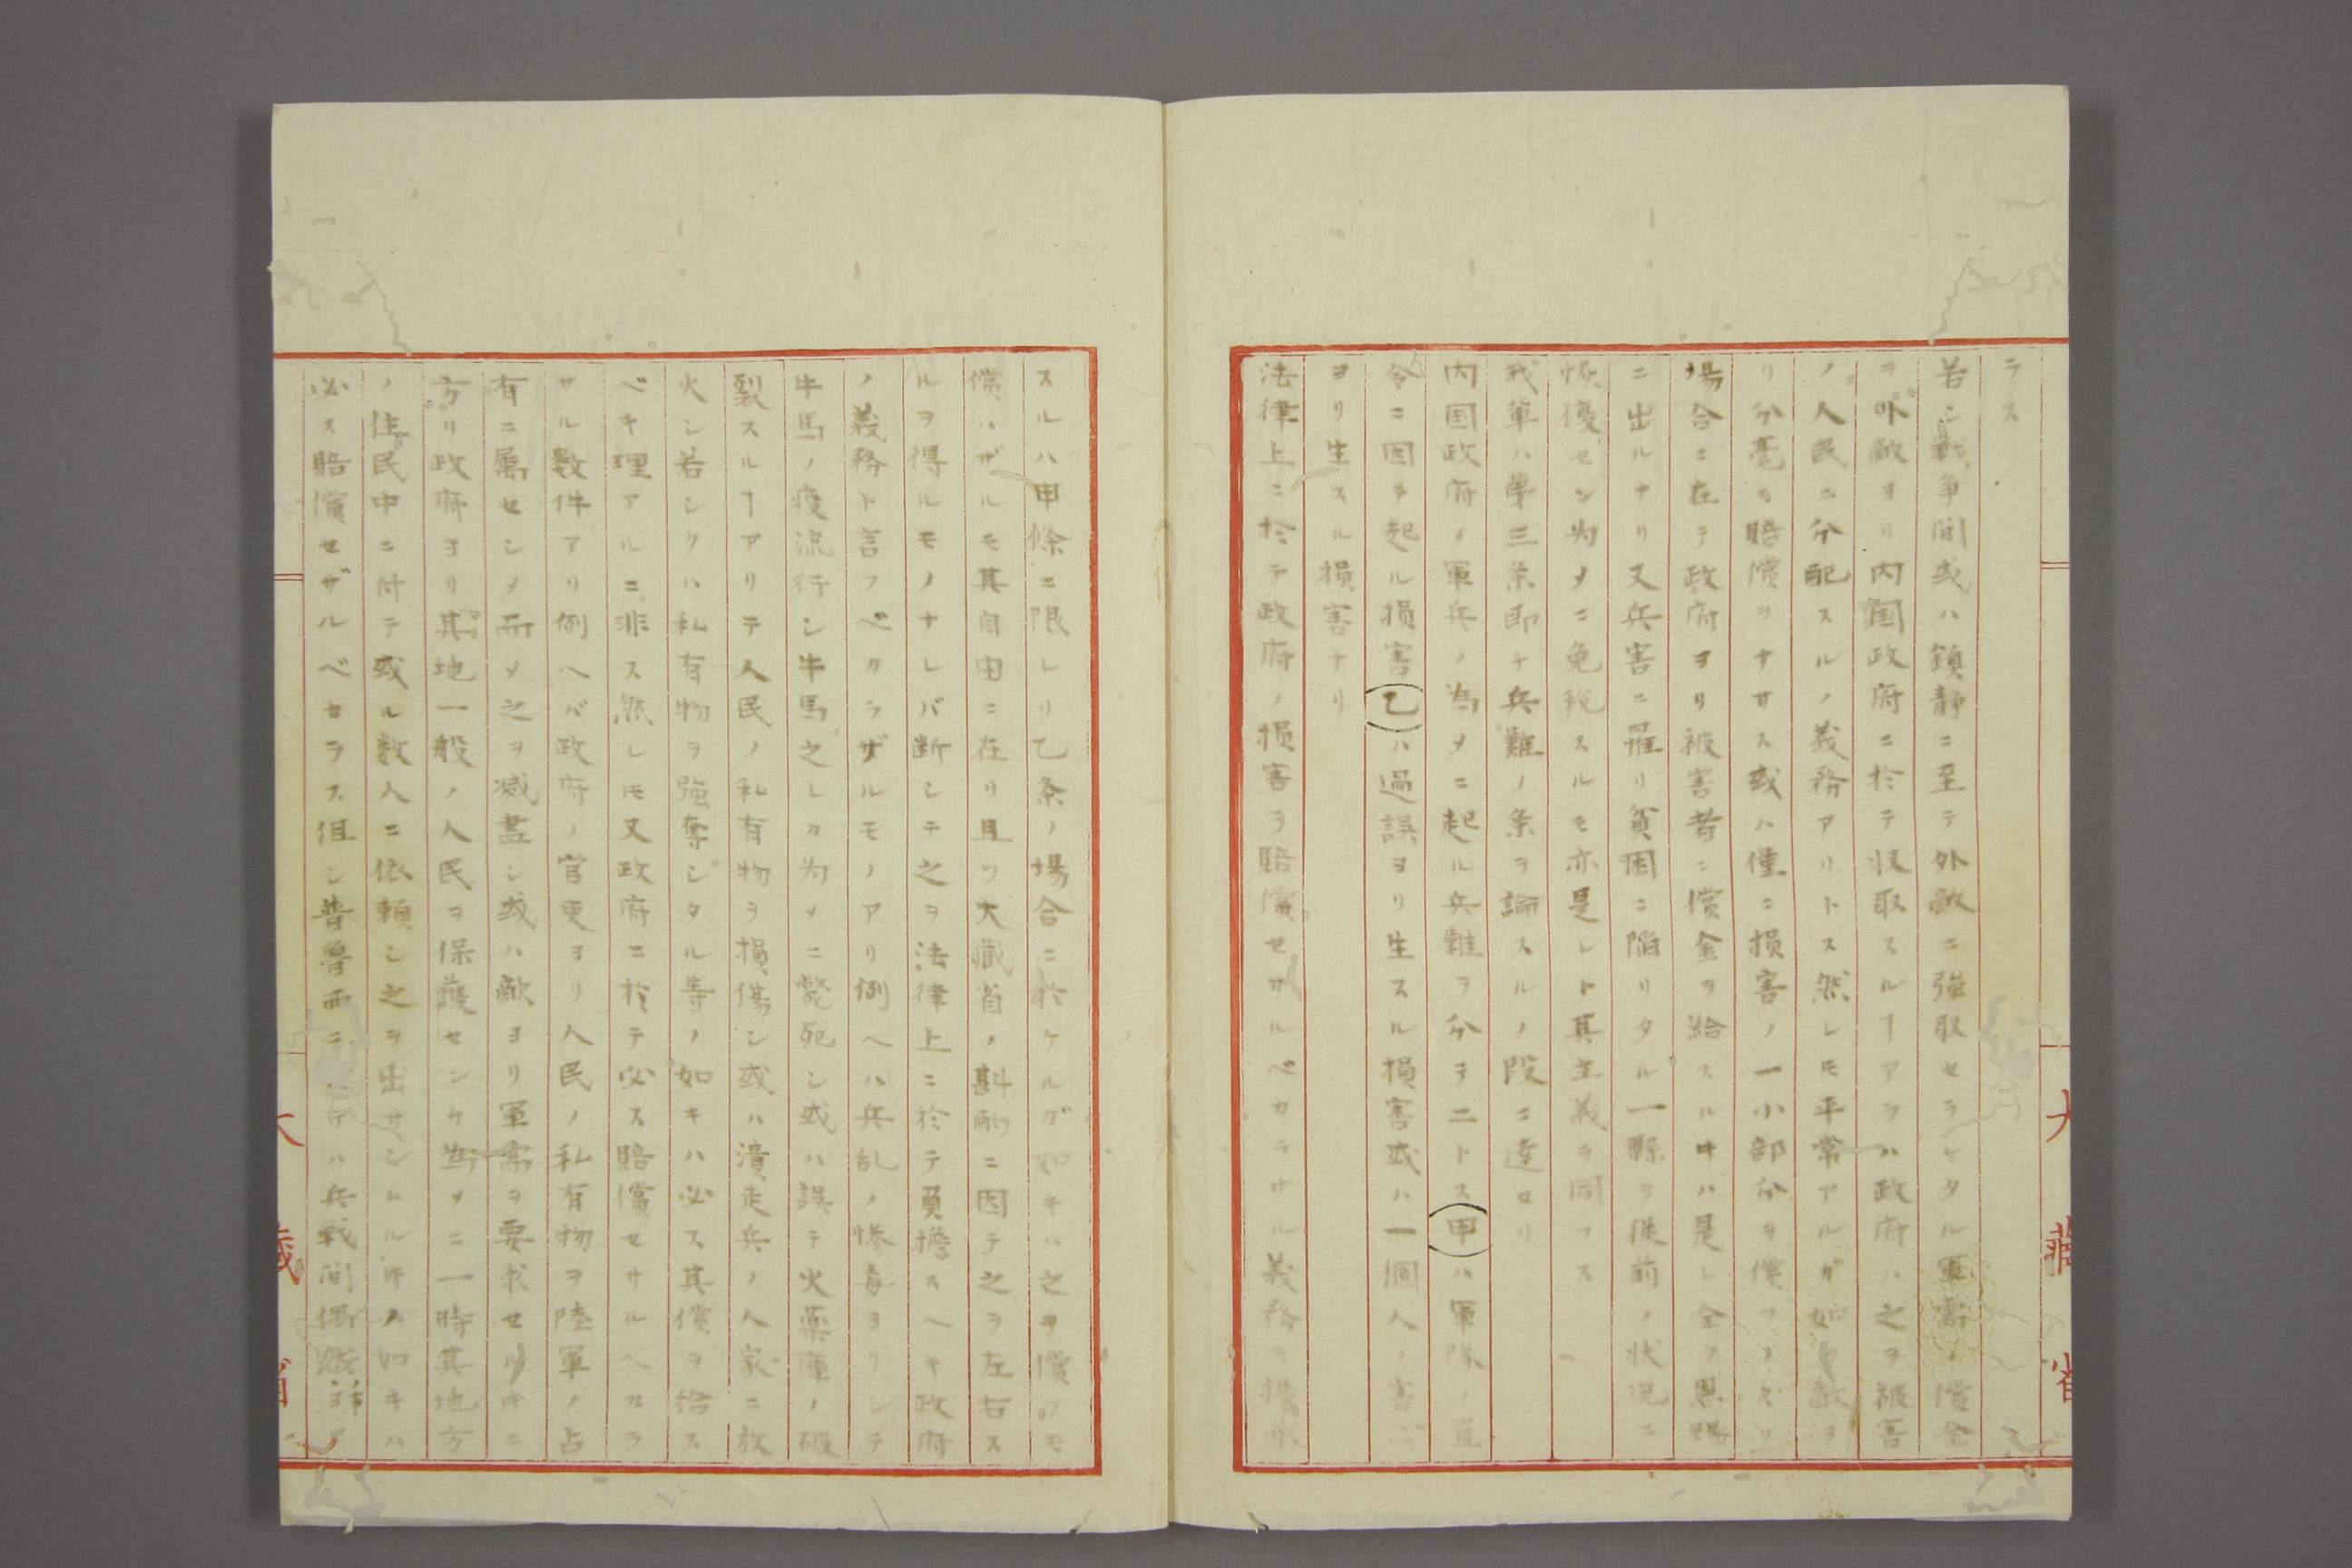 ラス
若シ戦争間或ハ鎮静ニ至テ外敵ニ強取セラレタル軍需ノ償金
ヲ外敵ヨリ内国政府ニ於テ収取スルヿアラハ政府ハ之ヲ被害
ノ人民ニ分配スルノ義務アリトス然レモ平常アルガ如ク敵ヨ
リ分毫モ賠償ヲナサス或ハ僅ニ損害ノ一小部分ヲ償フノミノ
場合ニ在テ政府ヨリ被害者ニ償金ヲ給スルキハ是レ全ク恩賜
ニ出ルナリ又兵害ニ罹リ貧困ニ陥リタル一縣ヲ従前ノ状况ニ
恢復セン為メニ免税スルモ亦是レト其主義ヲ同フス
我輩ハ第三条即チ兵難ノ条ヲ論スルノ段ニ達セリ
内国政府ノ軍兵ノ為メニ起ル兵難ヲ分テ二トス甲ハ軍隊ノ直
令ニ因テ起ル損害乙ハ過誤ヨリ生スル損害或ハ一個人ノ害心
ヨリ生スル損害ナリ
法律上ニ於テ政府ノ損害ヲ賠償セサルベカラサル義務ヲ擔承
スルハ甲條ニ限レリ乙条ノ場合ニ於ケルガ如キハ之ヲ償フモ
償ハザルモ其自由ニ在リ且ツ大藏省ノ斟酌ニ因テ之ヲ左右ス
ルヲ得ルモノナレバ断シテ之ヲ法律上ニ於テ負擔スヘキ政府
ノ義務ト言フベカラザルモノアリ例ヘハ兵乱ノ惨毒ヨリシテ
牛馬ノ疫流行シ牛馬之レカ為メニ斃死シ或ハ誤テ火藥庫ノ破
裂スルヿアリテ人民ノ私有物ヲ損傷シ或ハ潰走兵ノ人家ニ放
火シ若シクハ私有物ヲ強奪シタル等ノ如キハ必ス其償ヲ給ス
ベキ理アルニ非ス然レモ又政府ニ於テ必ス賠償セサルヘカラ
サル数件アリ例ヘバ政府ノ官吏ヨリ人民ノ私有物ヲ陸軍ノ占
有ニ属セシメ而メ之ヲ滅盡シ或ハ敵ヨリ軍需ヲ要求セリキニ
方リ政府ヨリ其地一般ノ人民ヲ保護センカ為メニ一時其地方
ノ住民中ニ付テ或ル数人ニ依頼シ之ヲ出サシムルキノ如キハ
必ス賠償セザルベカラス但シ普魯西ニテハ兵戦間
大藏省